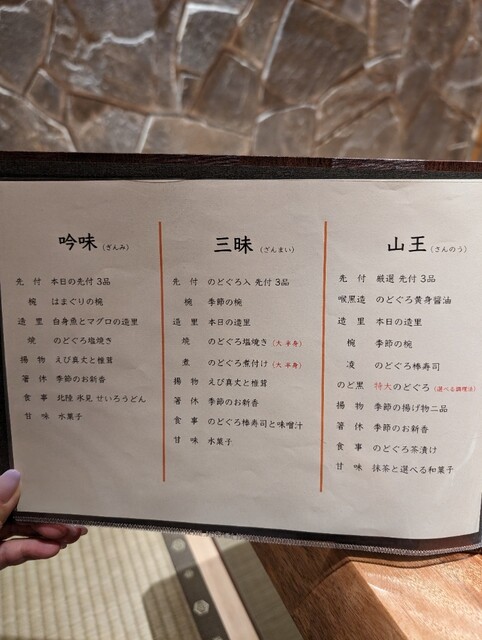 吟味（ぎんみ）
先付 本日の先付 3品
椀 はまぐりの椀
造里 白身魚とマグロの造里
焼 のどぐろ塩焼き
揚物 えび真丈と椎茸
箸休 季節のお新香
食事 北陸 氷見 せいろうどん
甘味 水菓子
三昧（ざんまい）
先付 のどぐろ入 先付 3品
椀 季節の椀
造里 本日の造里
焼 のどぐろ塩焼き（大 半身）
煮 のどぐろ煮付け（大 半身）
揚物 えび真丈と椎茸
箸休 季節のお新香
食事 のどぐろ棒寿司と味噌汁
甘味 水菓子
山王（さんのう）
先付 厳選 先付 3品
喉黒造 のどぐろ黄身醤油
造里 本日の造里
椀 季節の椀
凌 のどぐろ棒寿司
のど黒 特大のどぐろ（選べる調理法）
揚物 季節の揚げ物二品
箸休 季節のお新香
食事 のどぐろ茶漬け
甘味 抹茶と選べる和菓子